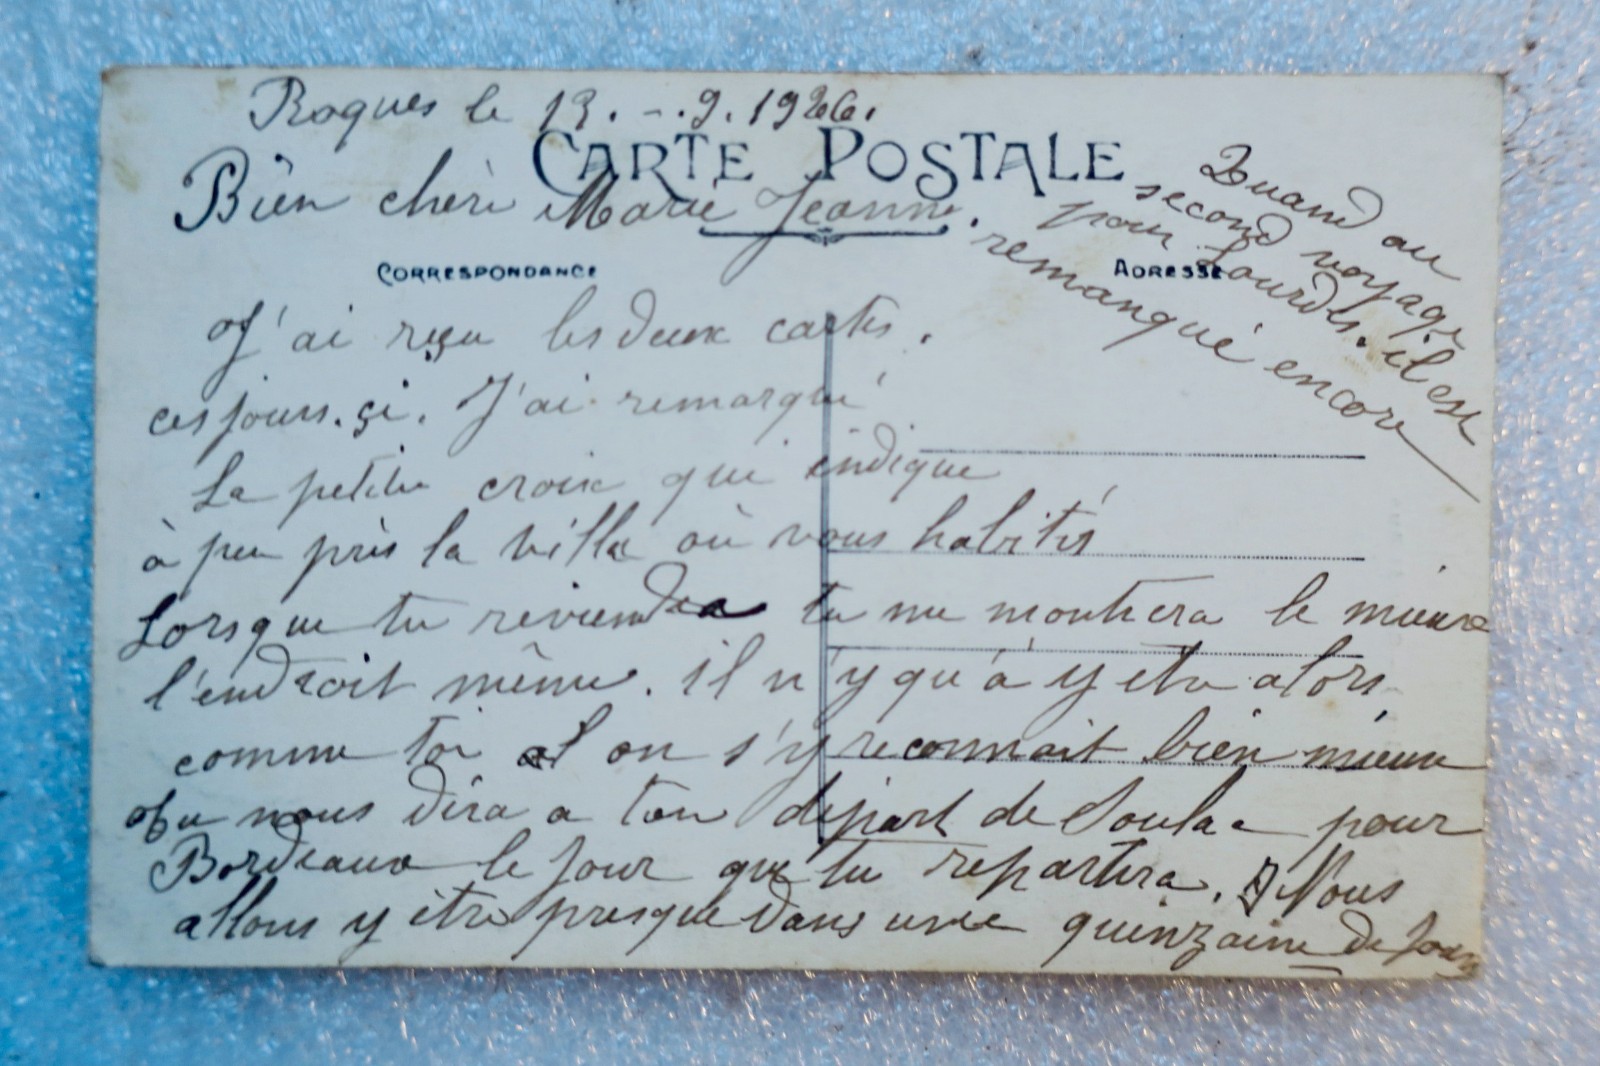 Roques le 13. - .9.1926.
CARTE POSTALE
Bien chèri Marie Jeanne.
CORRESPONDANCE
ADRESSE
J'ai reçu les deux cartes.
ces jours.çi. J'ai remarqué
La petite croix qui indique
à peu près la villa où vous habités
Lorsque tu reviendra tu me montrera le mieux
l'endroit même. il n'y qu'à y etre alors,
comme toi et on s'y reconnait bien mieux
Tu nous dira a ton départ de Soulac pour
Bordeaux le jour que tu repartira. Nous
allons y être presque dans une quinzaine de jours
Quand au
second voyage
pour Lourdes. il est
remanqué encore